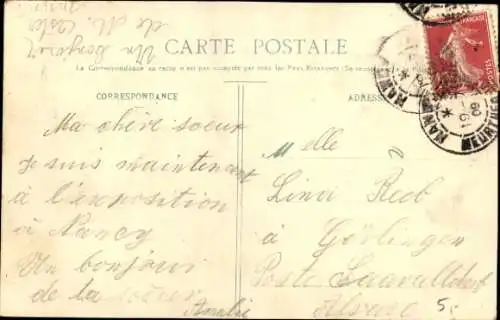 Un Bonjour
de M.
CARTE POSTALE
La Correspondance au recto n'est pas acceptée par tous les Pays Étrangers (Se renseigner
CORRESPONDANCE
ADRESSE
Ma chère soeur
Je suis maintenant
à l'exposition
à Nancy
Un bonjour
de ta soeur
Amélie
Melle
Lina Reeb
à Görlingen
Poste Saaraltdorf
Alsace
5,-
FRANÇAISE
POSTES
NANCY
MEURTHE
19-
09